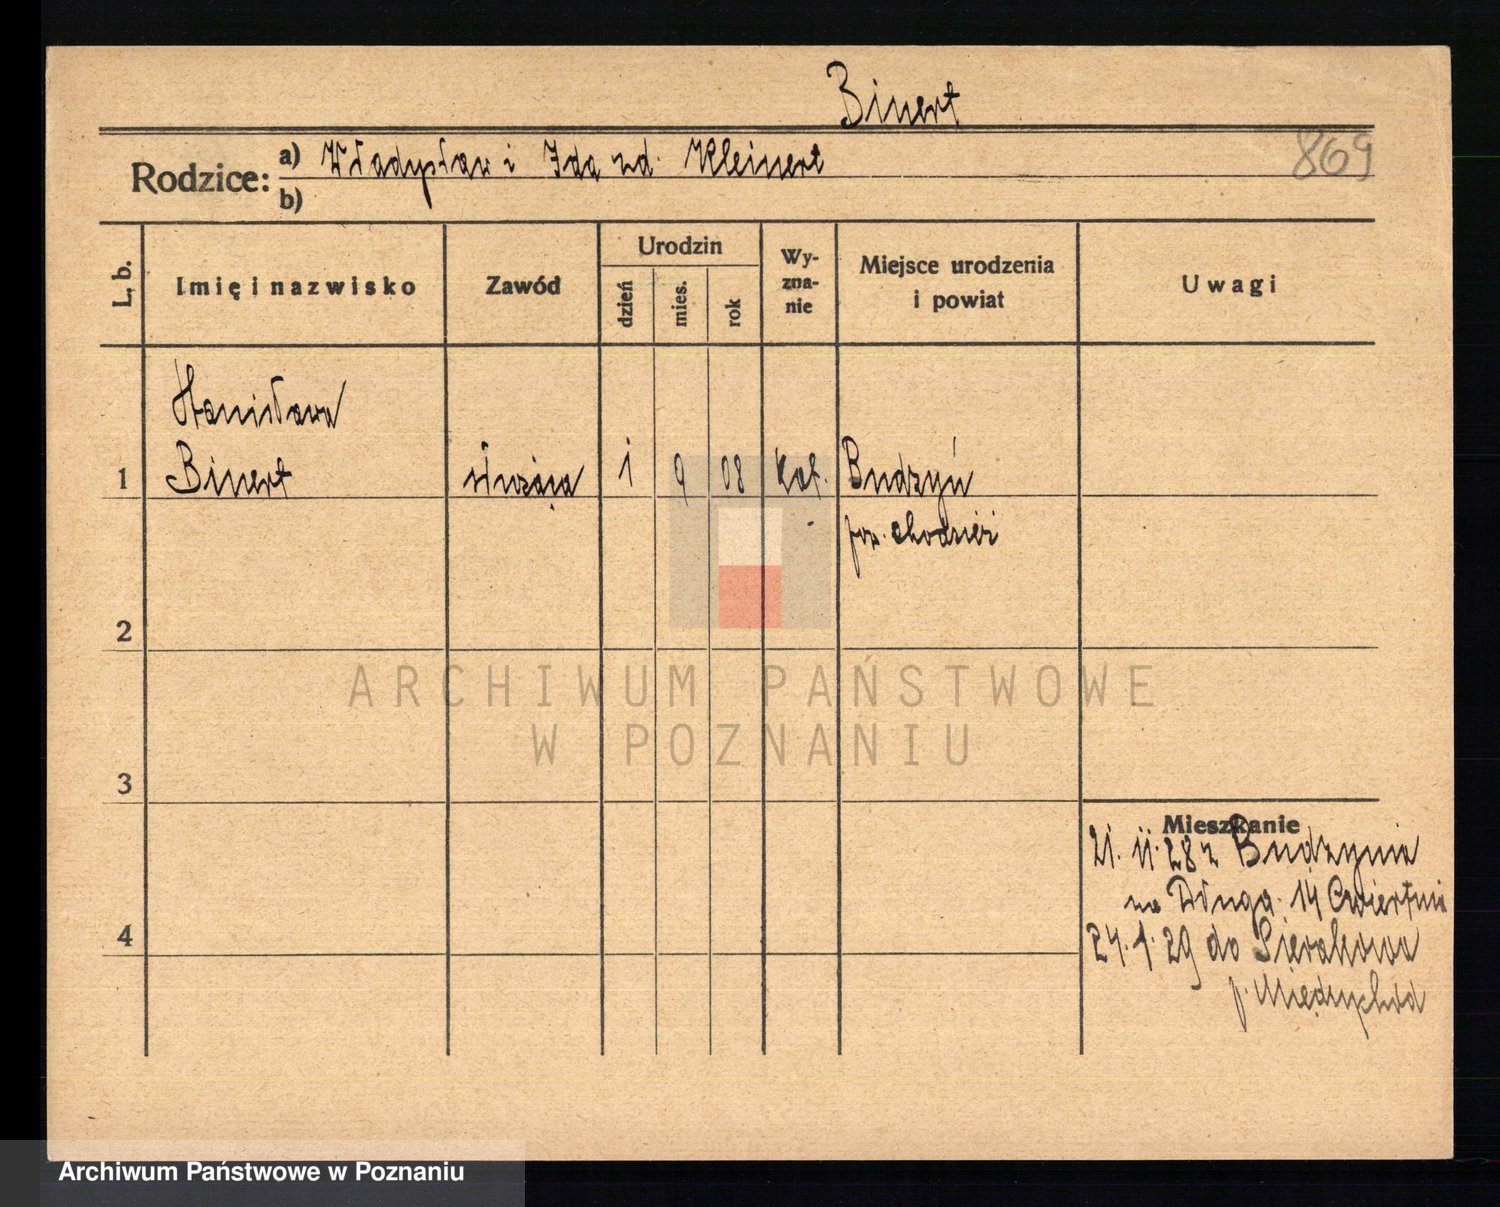 Binert
869
Rodzice: a) Władysław i Ida zd. Kleinert
b)
L. b.
Imię i nazwisko
Zawód
Urodzin
dzień
mies.
rok
Wy-
zna-
nie
Miejsce urodzenia
i powiat
Uwagi
Stanisława
1 Binert służąca 1 9 08 kat. Budzyń
pow. chodzież
2
3
4
Mieszkanie
21. 11. 28 z Budzynia
na Długa 14 Cwiertnia
24. 1. 29 do Sierakowa
p. Międzychód
ARCHIWUM PAŃSTWOWE
W POZNANIU
Archiwum Państwowe w Poznaniu